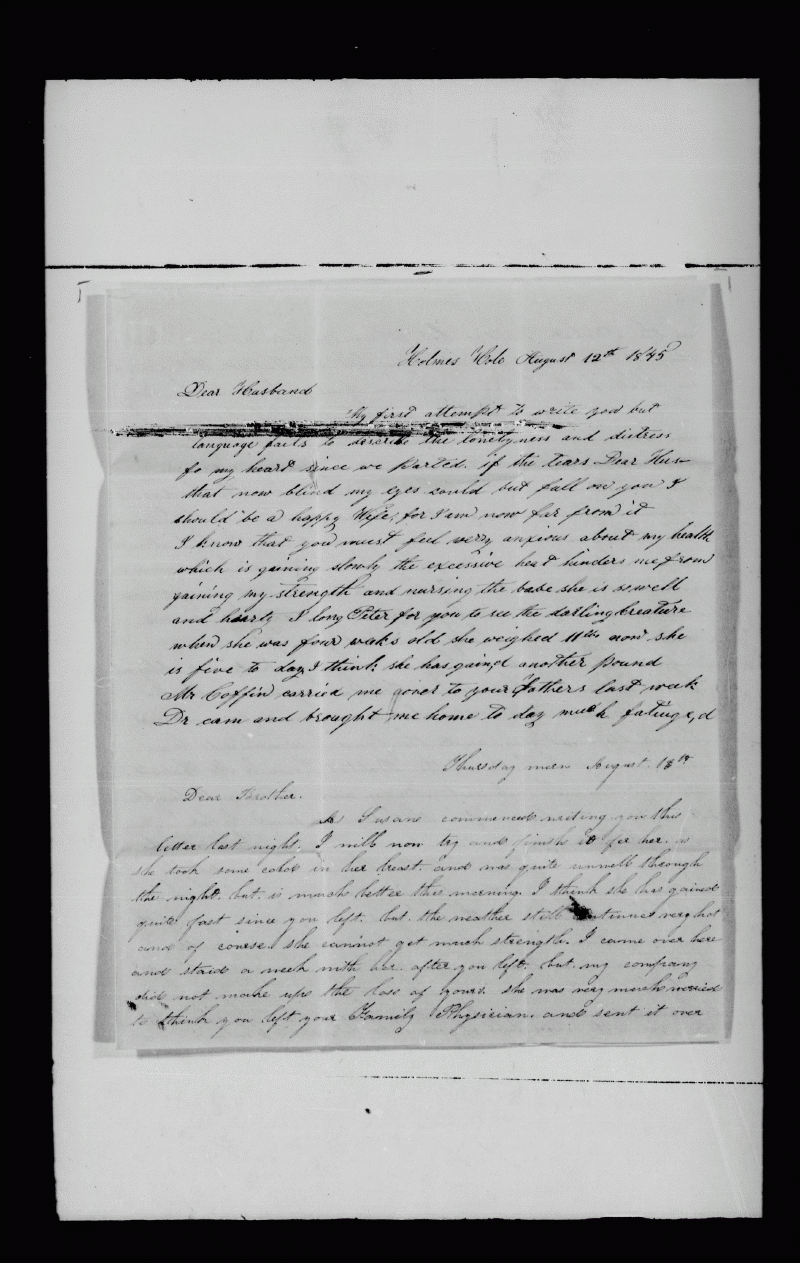 Holmes Hole August 12th 1845
Dear Husband
My first attempt to write you but
language fails to describe the lonelyness and distress
fo my heart since we parted. if the tears Dear Hus
that now blind my eyes could but fall on you I
should be a happy Wife, for I am now far from it
I know that you must feel verry anxious about my health
which is gaining slowly the excessive heat hinders me from
gaining my strength and nursing the babe she is so well
and hearty I long Peter for you to see the darling creature
when she was four weeks old she weighed 11lbs now she
is five to day I think she has gain,d another pound
Mr Coffin carried me over to your Fathers last week
Dr cam and brought me home to day much fatiuge,d
Thursday morn August. 13th
Dear Brother.
As Susane commenced writing you this
letter last night. I will now try and finish it for her. as
she took some cold in her breast. and was quite unwell through
the night. but is much better this morning. I think she has gained
quite fast since you left. but. the weather still continues very hot
and of course. she cannot get much strength. I came over here
and staid a week with her. after you left. but. my company
did not make up the loss of yours. she was very much worried
to think you left your Family Physician. and sent it over